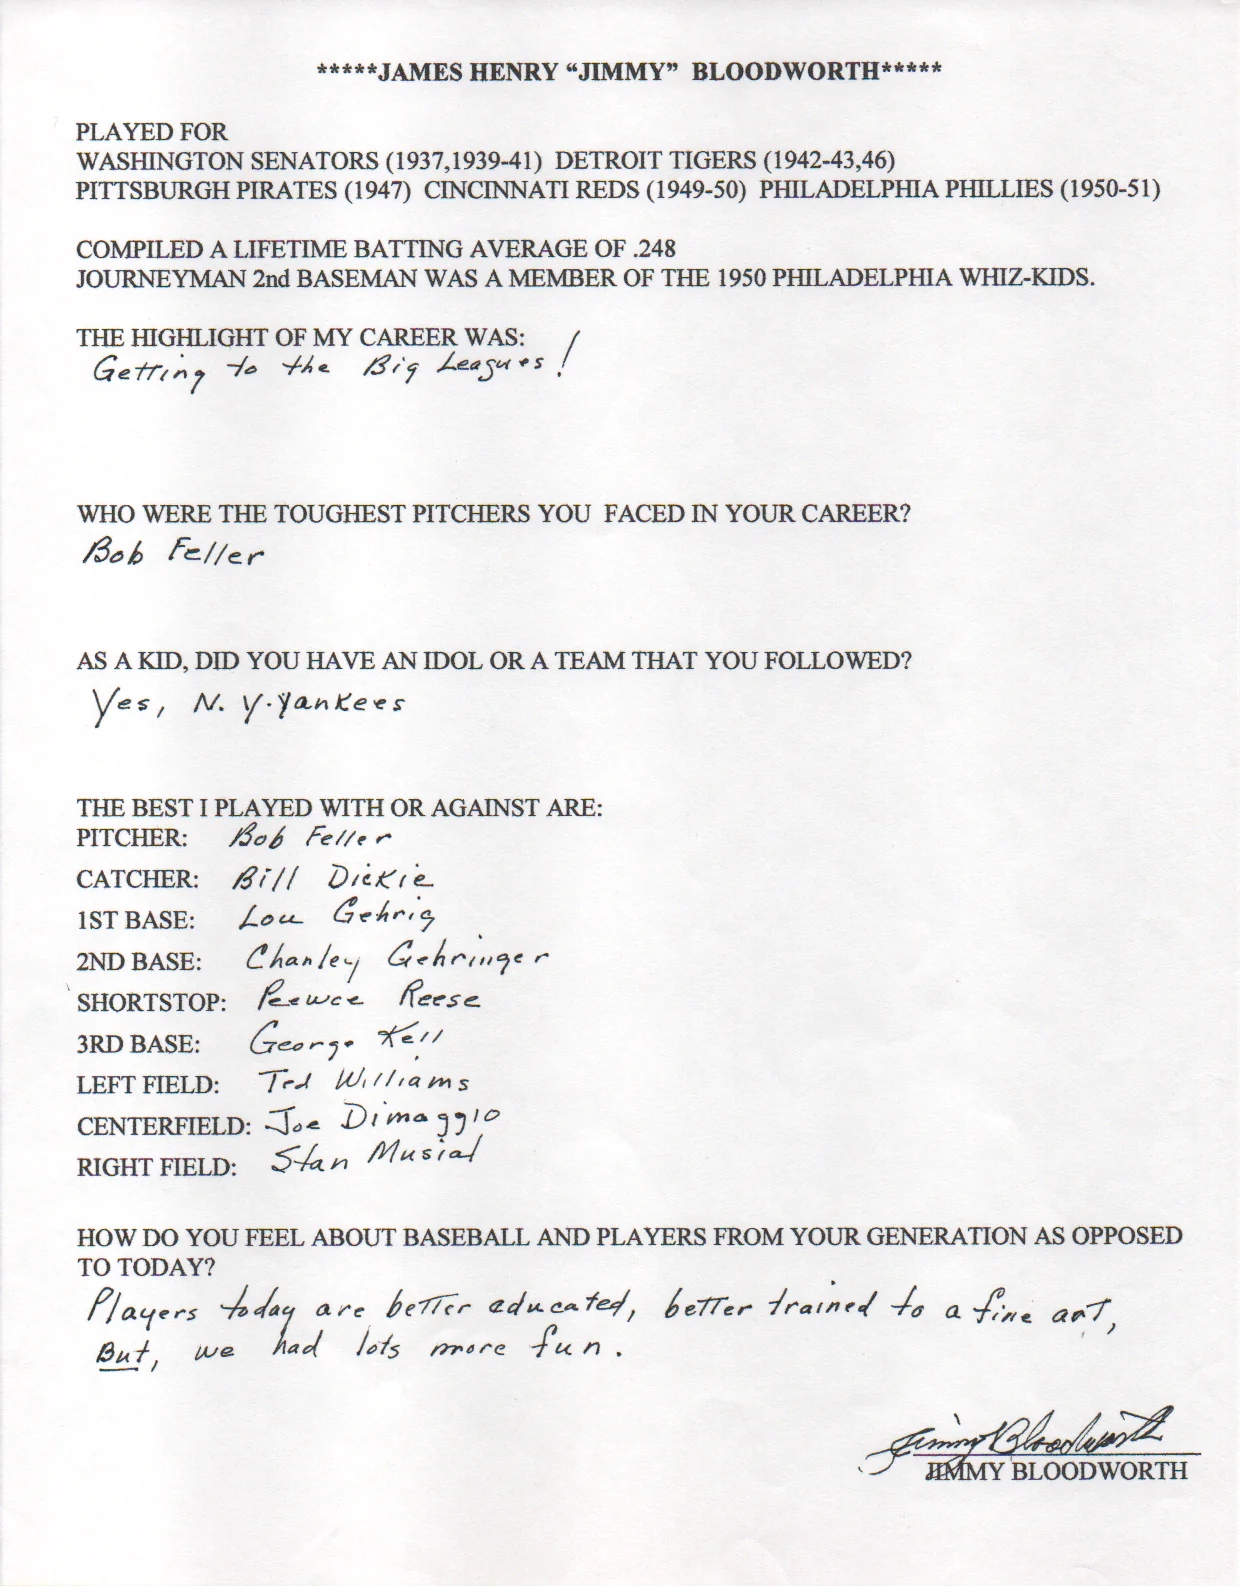 *****JAMES HENRY “JIMMY” BLOODWORTH*****
PLAYED FOR
WASHINGTON SENATORS (1937,1939-41) DETROIT TIGERS (1942-43,46)
PITTSBURGH PIRATES (1947) CINCINNATI REDS (1949-50) PHILADELPHIA PHILLIES (1950-51)
COMPILED A LIFETIME BATTING AVERAGE OF .248
JOURNEYMAN 2nd BASEMAN WAS A MEMBER OF THE 1950 PHILADELPHIA WHIZ-KIDS.
THE HIGHLIGHT OF MY CAREER WAS:
Getting to the Big Leagues!
WHO WERE THE TOUGHEST PITCHERS YOU FACED IN YOUR CAREER?
Bob Feller
AS A KID, DID YOU HAVE AN IDOL OR A TEAM THAT YOU FOLLOWED?
Yes, N. Y. Yankees
THE BEST I PLAYED WITH OR AGAINST ARE:
PITCHER: Bob Feller
CATCHER: Bill Dickie
1ST BASE: Lou Gehrig
2ND BASE: Charley Gehringer
SHORTSTOP: Peewee Reese
3RD BASE: George Kell
LEFT FIELD: Ted Williams
CENTERFIELD: Joe Dimaggio
RIGHT FIELD: Stan Musial
HOW DO YOU FEEL ABOUT BASEBALL AND PLAYERS FROM YOUR GENERATION AS OPPOSED
TO TODAY?
Players today are better educated, better trained to a fine art,
But, we had lots more fun.
Jimmy Bloodworth
JIMMY BLOODWORTH